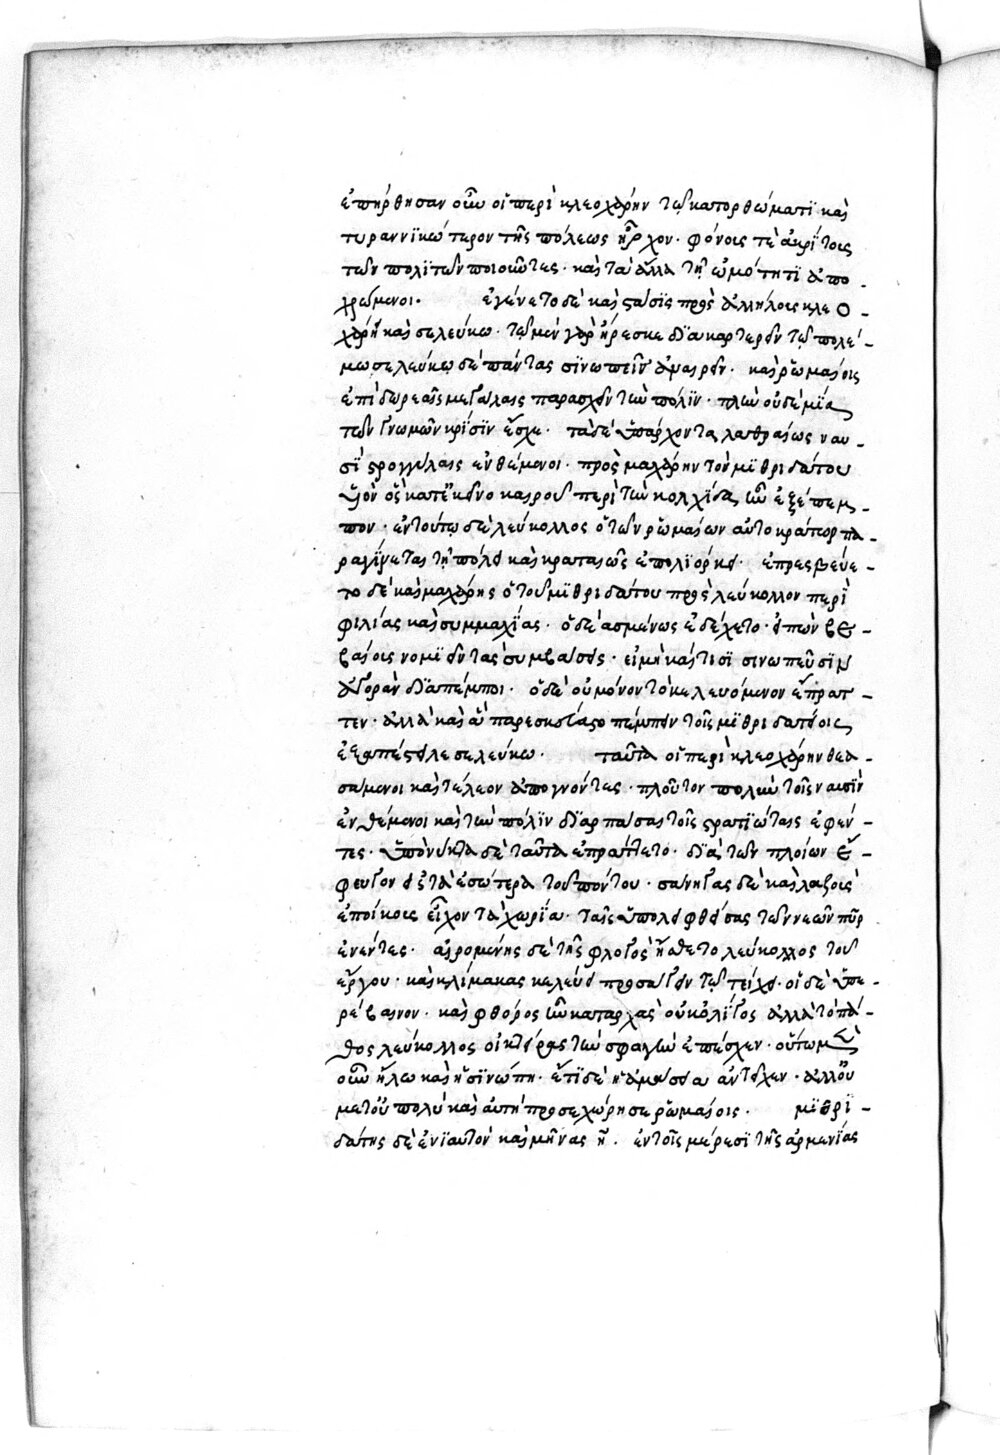 ἐπήρθησαν οὖν οἱ περὶ κλεοχάρην τῷ κατορθώματι καὶ
τυραννικώτερον τῆς πόλεως ἦρχον· φόνους τὲ ἀκρίτους
τῶν πολιτῶν ποιοῦντες· καὶ τὰ ἄλλα τῇ ὠμότητι ἀπο-
χρώμενοι. ἐγένετο δὲ καὶ στάσις πρὸς ἀλλήλους κλεο-
χάρῃ καὶ σελεύκῳ· τῷ μὲν γὰρ ἤρεσκε διακαρτερεῖν τῷ πολέ-
μῳ σελεύκῳ δὲ πάντας σινωπεῖς ἀναιρεῖν· καὶ ῥωμαίοις
ἐπὶ δωρεαῖς μεγάλαις παρασχεῖν τὴν πόλιν· πλὴν οὐδεμία
τῶν γνωμῶν κρίσιν ἔσχε· τὰ δὲ ὑπάρχοντα λαθραίως ναυ-
σὶ στρογγύλαις ἐνθέμενοι· πρὸς μαχάρην τὸν μιθριδάτου
υἱὸν ὃς κατ' ἐκεῖνο καιροῦ περὶ τὴν κολχίδα ἦν ἐξέπεμ-
πον· ἐν τούτῳ δὲ λεύκολλος ὁ τῶν ῥωμαίων αὐτοκράτορ πα-
ραγίνεται τῇ πόλει καὶ κραταιῶς ἐπολιόρκει· ἐπρεσβεύε-
το δὲ καὶ μαχάρης ὁ τοῦ μιθριδάτου πρὸς λεύκολλον περὶ
φιλίας καὶ συμμαχίας· ὁ δὲ ἀσμένως ἐδέχετο· εἰπὼν βε-
βαίους νομιεῖν τὰς συμβάσεις· εἰ μὴ καί τισι σινωπεῦσιν
ἀγορὰν διαπέμποι· ὁ δὲ οὐ μόνον τὸ κελευόμενον ἔπραττ-
τεν· ἀλλὰ καὶ ἃ παρεσκεύαστο πέμπειν τοῖς μιθριδατείοις
ἐξαπέστειλε λευκόλλῳ· ταῦτα οἱ περὶ κλεοχάρην θεα-
σάμενοι καὶ τέλεον ἀπογνόντες· πλοῦτον πολὺν τοῖς ναυσὶν
ἐνθέμενοι καὶ τὴν πόλιν διαρπάσαι τοῖς στρατιώταις ἐφέν-
τες· ὑπὸ νύκτα δὲ ταῦτα ἐπράττετο· διὰ τῶν πλοίων ἔ-
φευγον εἰς τὰ ἐσώτερα τοῦ πόντου· σάνηγας δὲ καὶ λαζοὺς
ἐποίκους εἶχον τὰ χωρία· ταῖς ὑπολειφθείσαις τῶν νεῶν πῦρ
ἐνέντες· αἰρομένης δὲ τῆς φλογὸς ᾔσθετο λεύκολλος τοῦ
ἔργου· καὶ κλίμακας κελεύει προσάγειν τῷ τείχει· οἱ δὲ ὑπε-
ρέβαινον· καὶ φθόρος ἦν καταρχὰς οὐκ ὀλίγος ἀλλὰ τὸ πά-
θος λεύκολλος οἰκτείρας τὴν σφαγὴν ἐπέσχεν· οὕτω μὲν
οὖν ἥλω καὶ ἡ σινώπη· ἔτι δὲ ἡ ἀμάσεια ἀντεῖχεν· ἀλλ' οὐ
μετ' οὐ πολὺ καὶ αὐτὴ προσεχώρησε ῥωμαίοις. μιθρι-
δάτης δὲ ἐνιαυτὸν καὶ μῆνας η. ἐν τοῖς μέρεσι τῆς ἀρμενίας